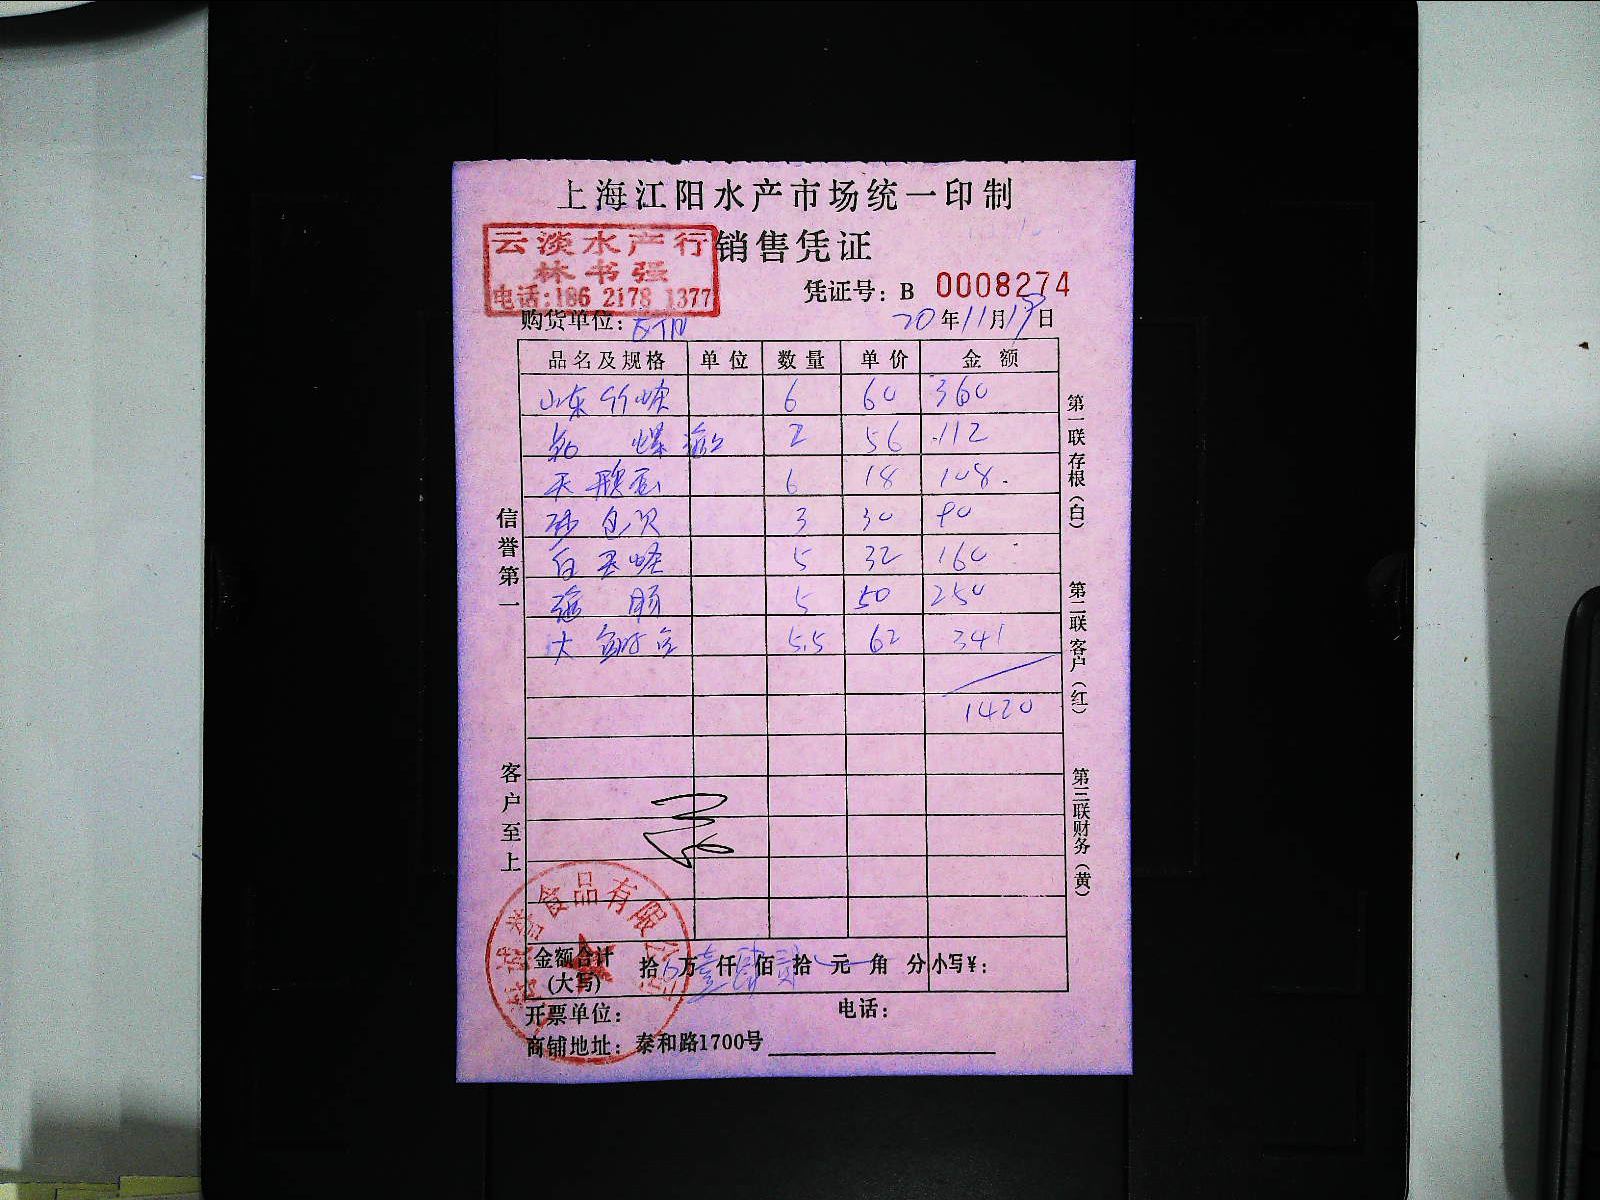 上海江阳水产市场统一印制
云淡水产行 销售凭证
林书强
电话:186 2178 1377
凭证号: B 0008274
购货单位: 20年11月19日
品名及规格 单位 数量 单价 金额
山东竹蛏 6 60 360
螺 2 56 112
天鹅蛋 6 18 108
沙包贝 3 30 90
白玉蛏 5 32 160
海肠 5 50 250
大 5.5 62 341
1420
信誉第一
客户至上
第一联存根(白)
第二联客户(红)
第三联财务(黄)
食品有限公司
金额合计(大写) 拾 万壹仟肆佰贰拾 元 角 分 小写¥:
开票单位: 电话:
商铺地址: 泰和路1700号